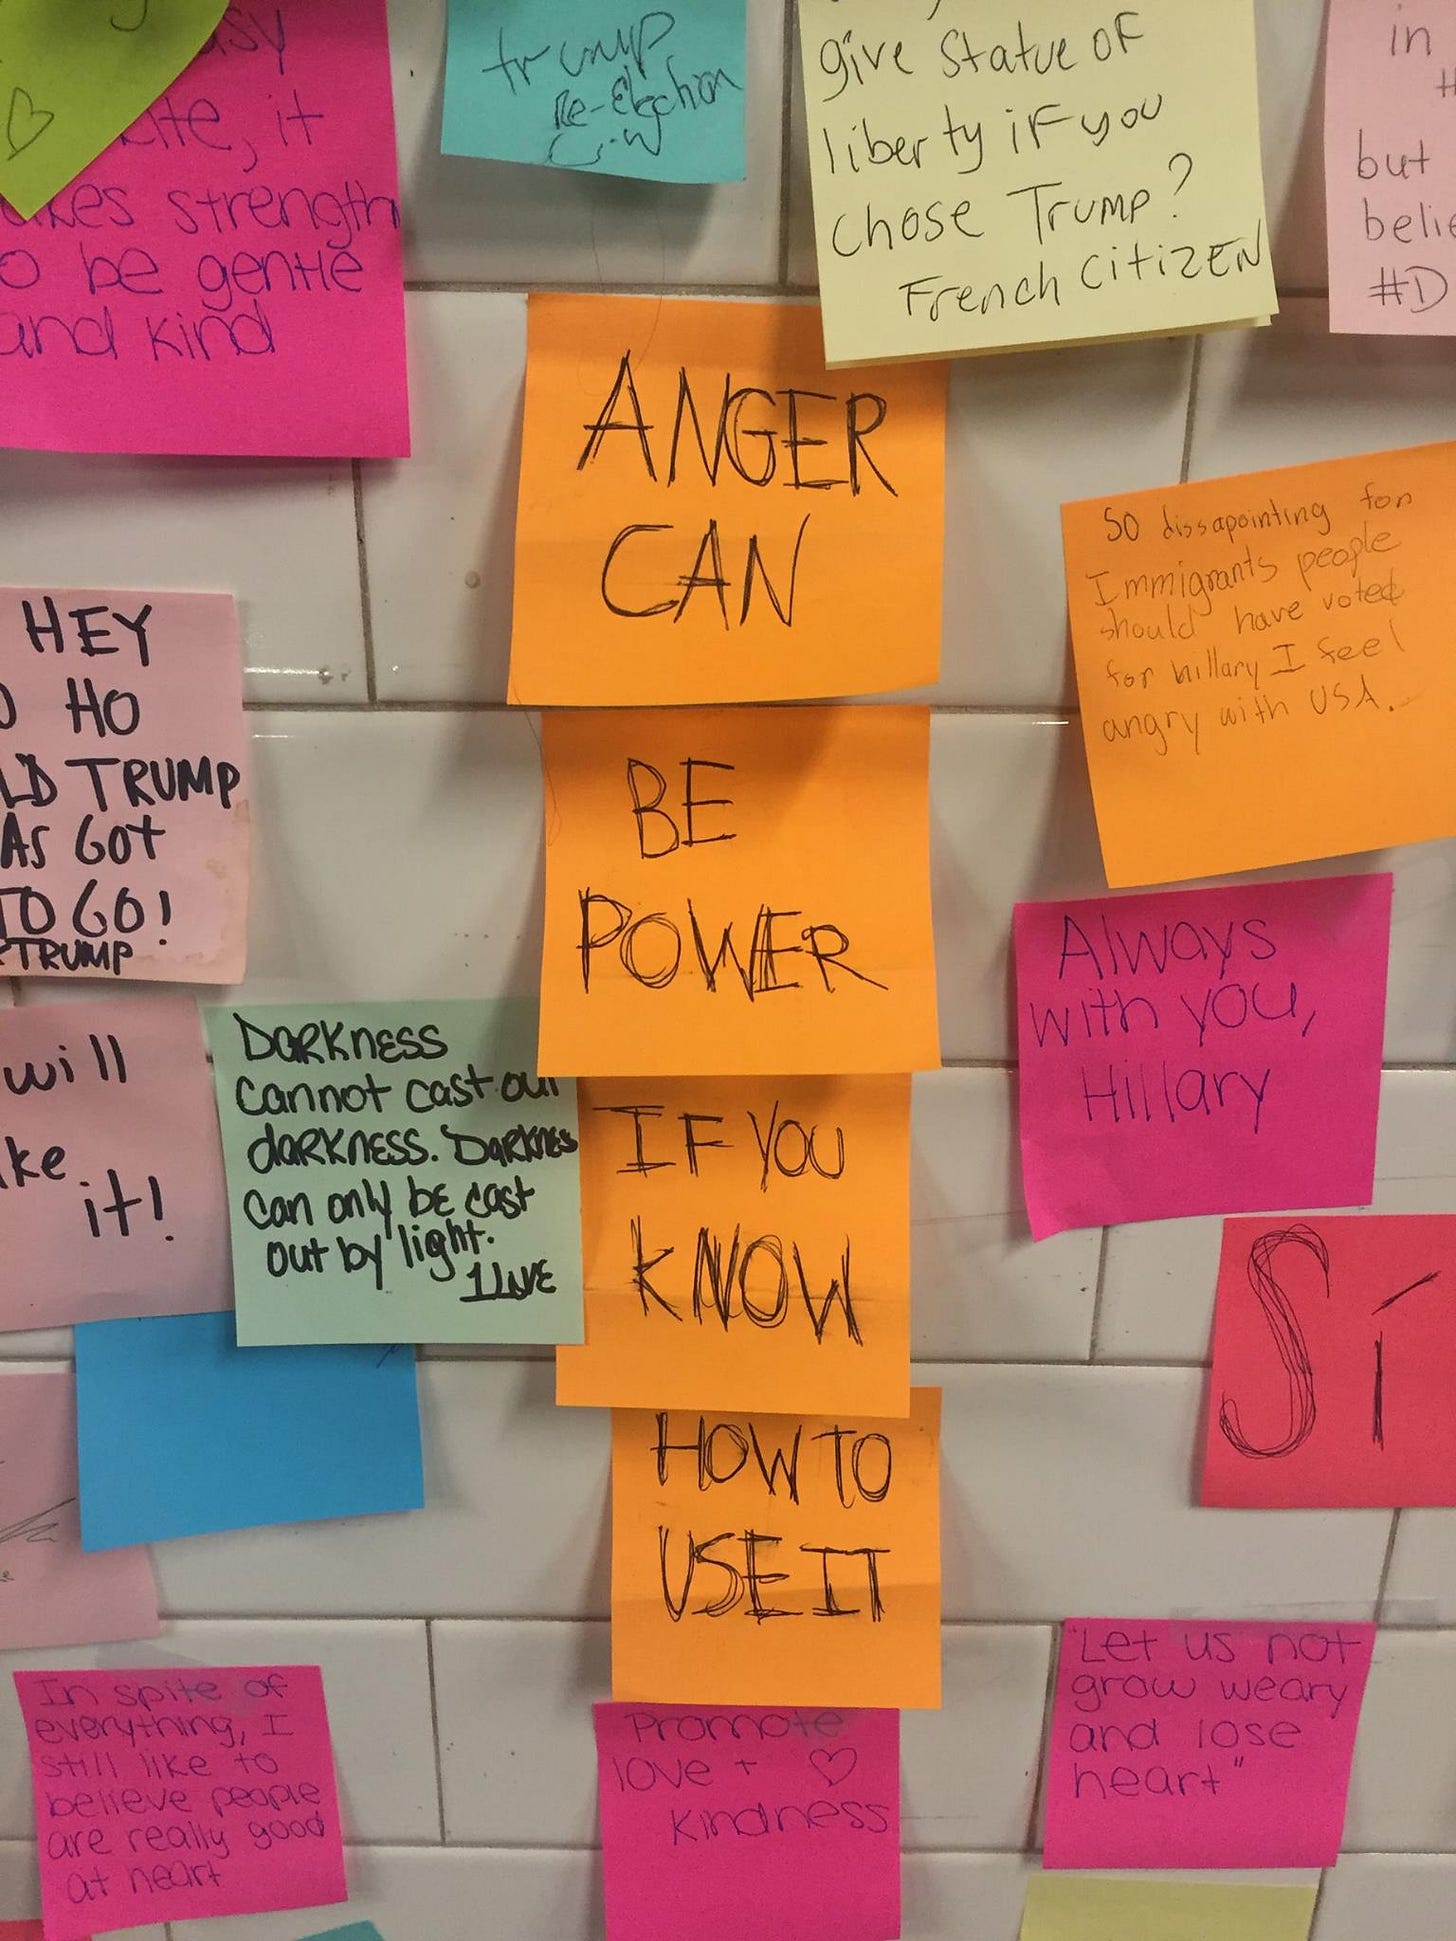 it
strength
be gentle
and kind
trump
Re-Election
give Statue of
liberty if you
chose Trump?
French citizen
in
but
#D
ANGER
CAN
BE
POWER
IF YOU
KNOW
HOW TO
USE IT
So dissapointing for
Immigrants people
should have voted
for hillary I feel
angry with USA.
HEY
HO
TRUMP
GOT
TO GO!
TRUMP
Always
with you,
Hillary
will
it!
Darkness
cannot cast out
darkness. Darkness
can only be cast
out by light.
1LOVE
Sí
In spite of
everything, I
still like to
believe people
are really good
at heart
Promote
love + ♡
kindness
"Let us not
grow weary
and lose
heart"